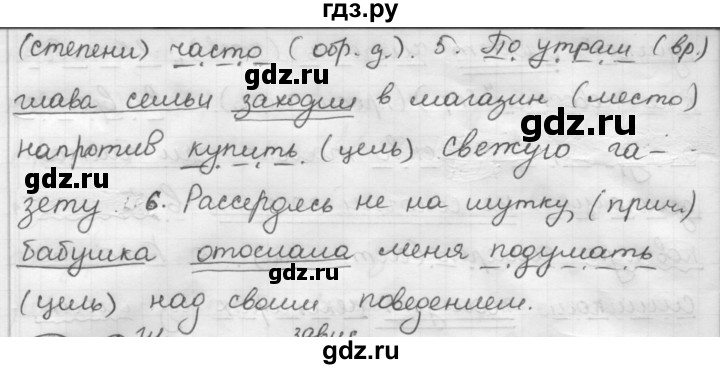 гдз.ру
(степени) часто (обр. д.). 5. По утрам (вр.)
глава семьи заходил в магазин (место)
напротив купить (цель) свежую га-
зету. 6. Рассердясь не на шутку, (прич.)
бабушка отослала меня подумать
(цель) над своим поведением.
gdz.ru
gdz.ru
gdz.ru
gdz.ru
gdz.ru
gdz.ru